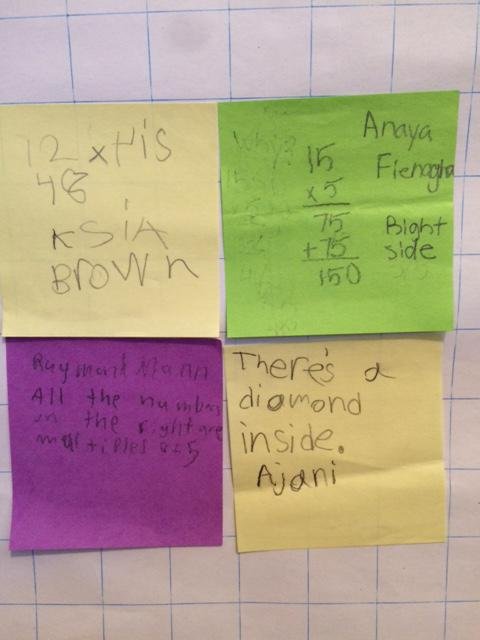 12 x 4 is
48
KSiA
BroWn
Why?
15
x5
75
+75
150
Anaya
Fienagha
Bight
side
Raymond Mann
All the number
on the right are
multiples of 5
There's a
diamond
inside.
Ajani